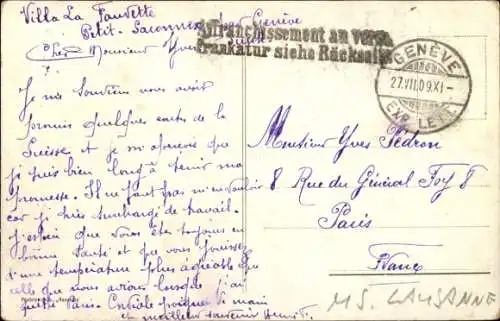 Villa La Fauvette
Petit-Saconnex, Genève
Cher Monsieur Yves
Je me souviens vous avoir
promis quelques cartes de la
Suisse et je m'aperçois que
je suis bien long à tenir ma
promesse. Il ne faut pas m'en vouloir
car je suis surchargé de travail.
J'espère que vous êtes toujours en
bonne santé et que vous jouissez
d'une température plus agréable que
celle que nous avions lorsque j'ai
quitté Paris. Cordiale poignée de main
et meilleur souvenir Henri
Affranchissement au verso
Frankatur siehe Rückseite
GENÈVE
27.VII.09.XI-
EXP. LETT.
Monsieur Yves Pédron
8 Rue du Général Foy 8
Paris
France
MS. LAUSANNE